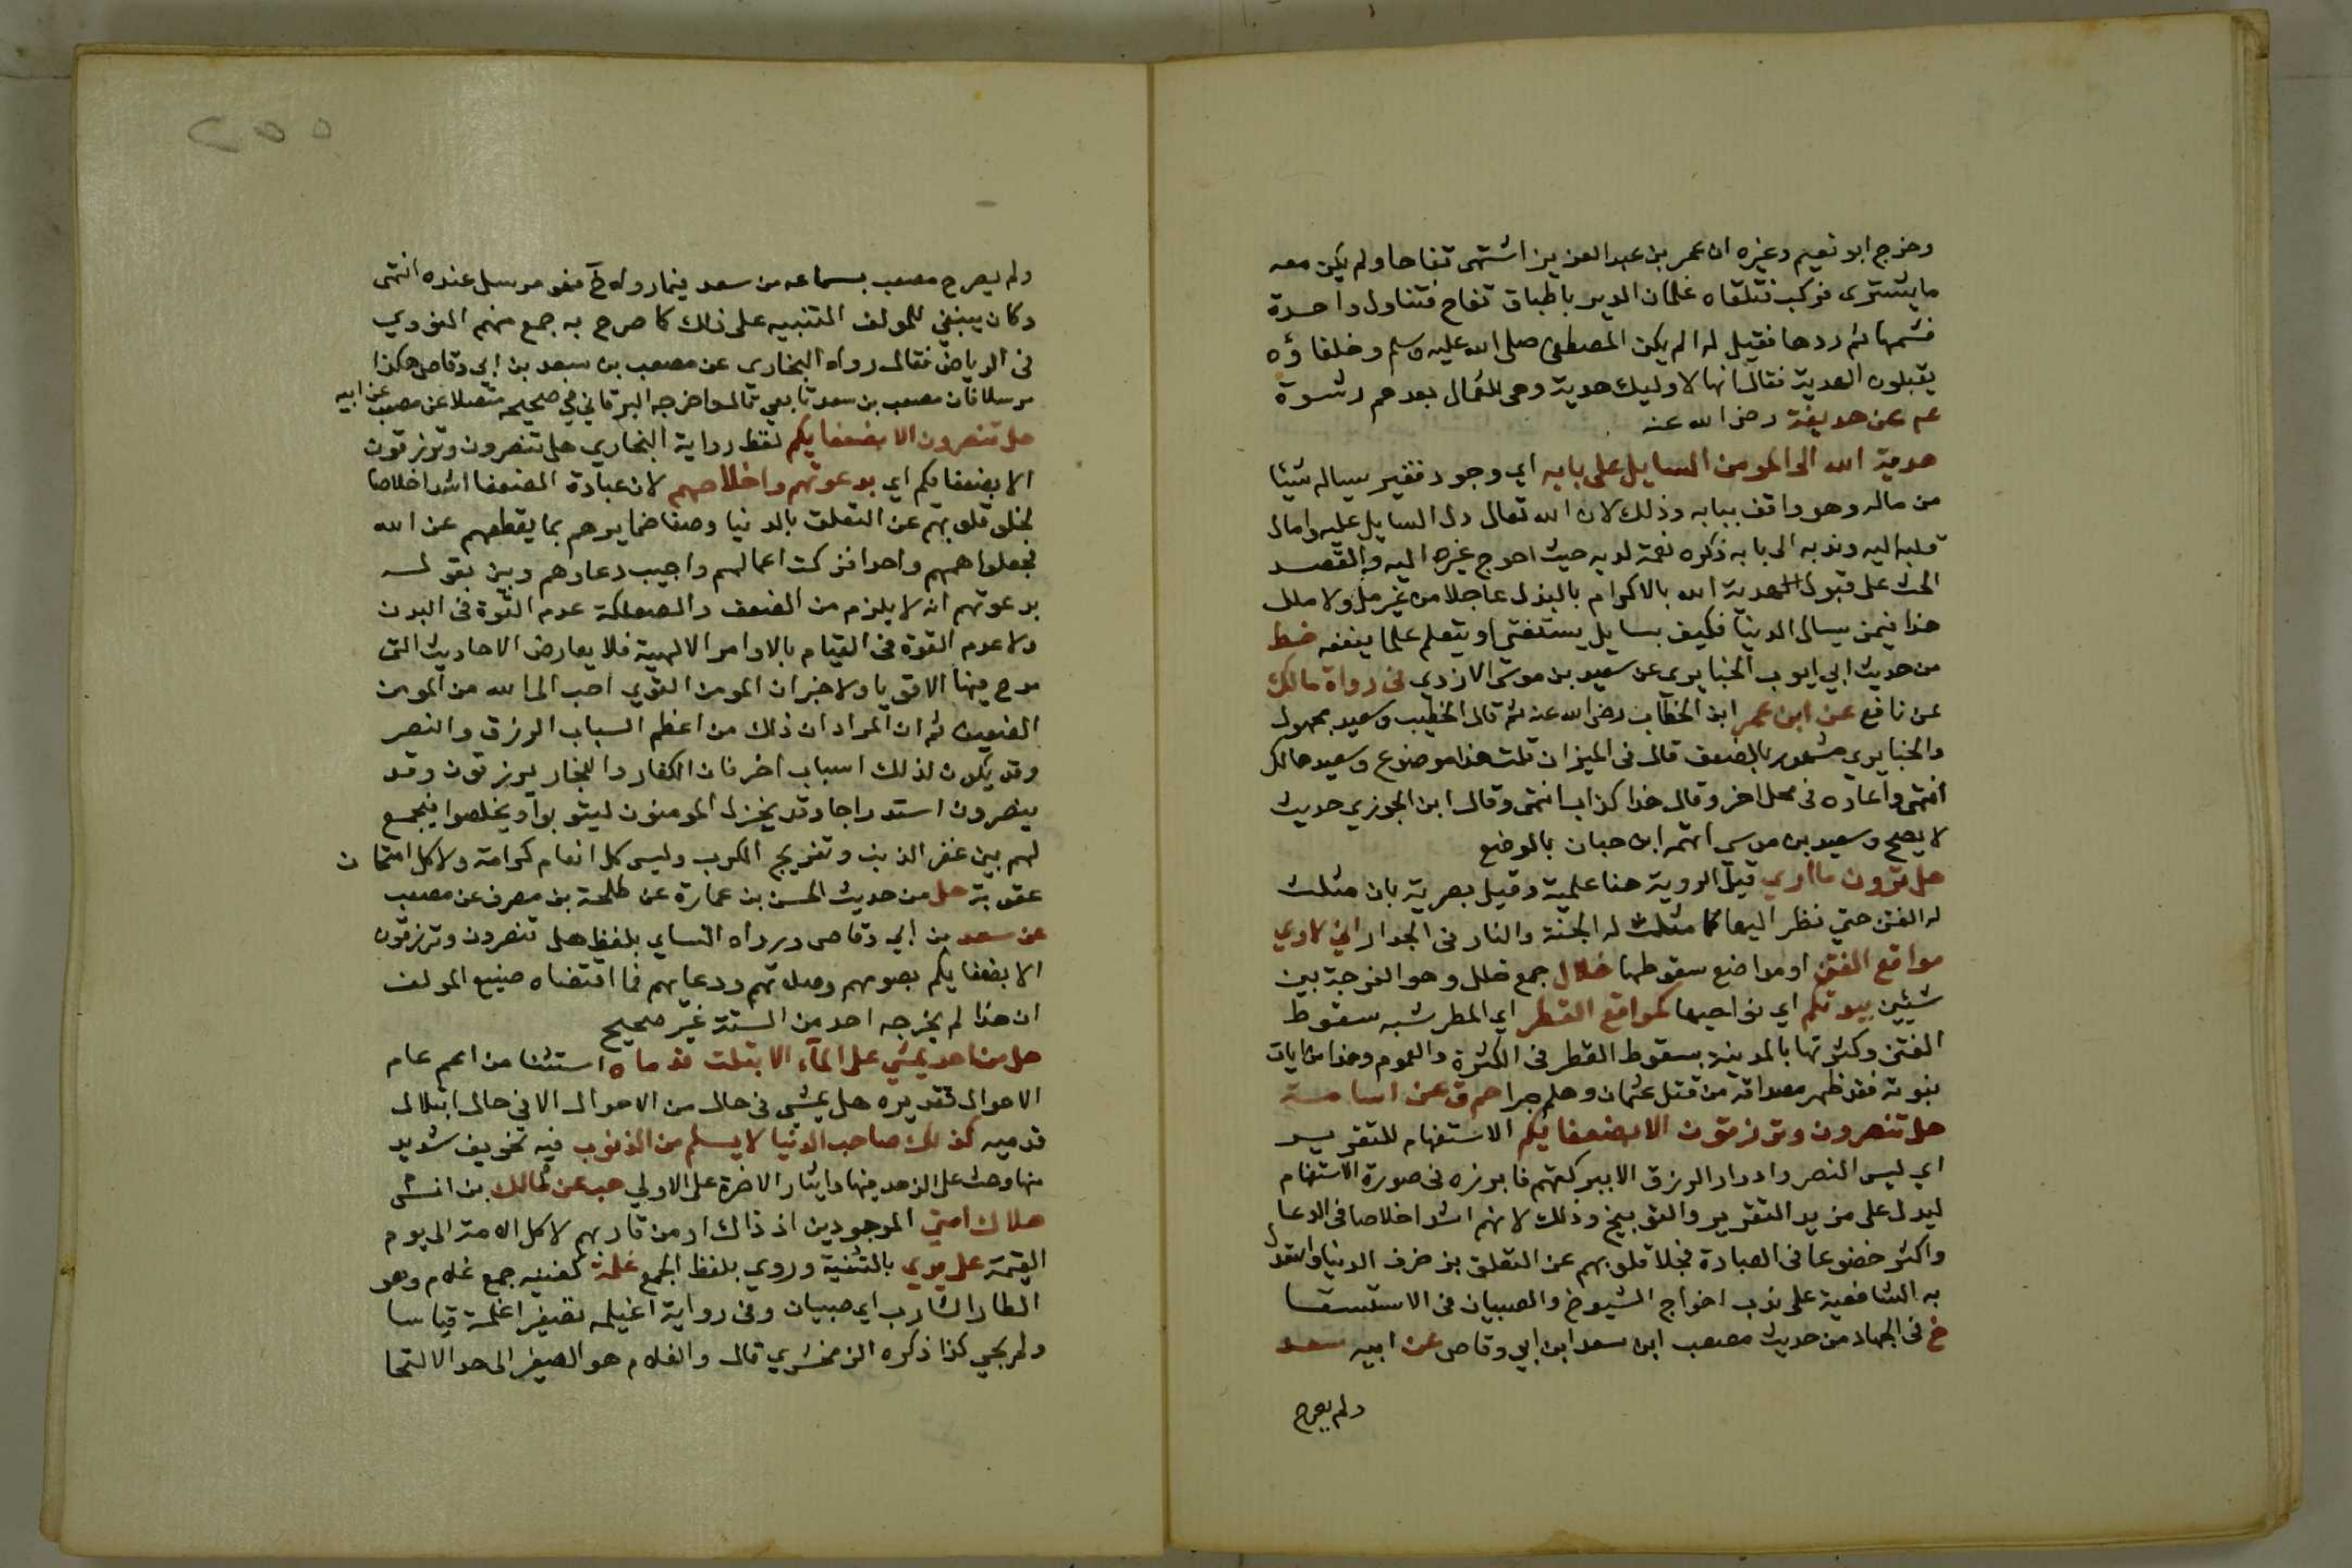 وخرج ابو نعيم وغيره ان عمر بن عبد العزيز اشتهى تفاحا ولم يكن معه
ما يشترى فركب فتلقاه غلمان الدير باطباق تفاح فتناول واحدة
فشمها ثم ردها فقيل له الم يكن المصطفى صلى الله عليه وسلم وخلفاؤه
يقبلون الهدية فقال انها لاوليك هدية وهى للعمال بعدهم رشوة
عم عن حذيفة رضى الله عنه
هدية الله الى المومن السايل على بابه اي وجود فقير يساله شيئا
من ماله وهو واقف ببابه وذلك لان الله تعالى دل السايل عليه وامال
قلبه اليه وندبه الى بابه ذكره نعمة لديه حيث احوج غيره اليه والقصد
الحث على قبول الهدية الله بالاكرام بالبذل عاجلا من غير مل ولا ملل
هذا فيمن يسال الدنيا فكيف بسايل يستفتي او يتعلم علما ينفعه خط
من حديث ابي ايوب الخبايرى عن سعيد بن موسى الازدي فى رواة مالك
عن نافع عن ابن عمر ابن الخطاب رضى الله عنه ثم قال الخطيب وسعيد مجهول
والخبايرى مشهور بالضعف قال فى الميزان قلت هذا موضوع وسعيد هالك
انتهى واعاده فى محل اخر وقال هذا كذاب انتهى وقال ابن الجوزي حديث
لا يصح وسعيد بن موسى اتهمه ابن حبان بالوضع
هل ترون ما ارى قيل الروية هنا علمية وقيل بصرية بان مثلت
له الفتن حتي نظر اليها كما مثلت له الجنة والنار فى الجدار اني لاري
مواقع الفتن او مواضع سقوطها خلال جمع خلل وهو الفرجة بين
شيئين بيوتكم اي نواحيها كمواقع القطر اي المطر شبه سقوط
الفتن وكثرتها بالمدينة بسقوط القطر فى الكثرة والعموم وهذا من ايات
نبوته فقد ظهر مصداقه من قتل عثمان وهلم جرا حم ق عن اسامة
هل تنصرون وترزقون الا بضعفايكم الاستفهام للتقرير
اي ليس النصر وادرار الرزق الا ببركتهم فابرزه فى صورة الاستفهام
ليدل على مزيد التقرير والتوبيخ وذلك لانهم اشد اخلاصا فى الدعا
واكثر خضوعا فى العبادة لخلا قلوبهم عن التعلق بزخرف الدنيا واستدل
به الشافعية على ندب اخراج الشيوخ والصبيان فى الاستسقا
خ فى الجهاد من حديث مصعب ابن سعد ابن ابي وقاص عن ابيه سعد
ولم يصرح
ولم يصرح مصعب بسماعه من سعد فيما رواه خ فهو مرسل عنده انتهى
وكان ينبغي للمولف التنبيه على ذلك كما صرح به جمع منهم النووي
فى الرياض فقال رواه البخارى عن مصعب بن سعد بن ابي وقاص هكذا
مرسلا فان مصعب بن سعد تابعي قال واخرجه البرقاني في صحيحه متصلا عن مصعب عن ابيه
هل تنصرون الا بضعفايكم لفظ رواية البخاري هل تنصرون وترزقون
الا بضعفايكم اي بدعوتهم واخلاصهم لان عبادة الضعفا اشد اخلاصا
لخلو قلوبهم عن التعلق بالدنيا وصفا ضمايرهم بما يقطعهم عن الله
فجعلوا همهم واحدا فزكت اعمالهم واجيب دعاوهم وبين بقوله
بدعوتهم انه لا يلزم من الضعف والصعلكة عدم القوة فى البدن
ولا عدم القوة فى القيام بالاوامر الالهية فلا يعارض الاحاديث التى
مدح فيها الاقويا ولا خبر ان المومن القوي احب الى الله من المومن
الضعيف ثم ان المراد ان ذلك من اعظم اسباب الرزق والنصر
وقد يكون لذلك اسباب اخر فان الكفار والفجار يرزقون وقد
ينصرون استدراجا وقد يخذل المومنون ليتوبوا ويخلصوا فيجمع
لهم بين غفر الذنب وتفريج الكرب وليس كل انعام كرامة ولا كل امتحان
عقوبة حل من حديث الحسن بن عمارة عن طلحة بن مصرف عن مصعب
عن سعد بن ابي وقاص ورواه النساي بلفظ هل تنصرون وترزقون
الا بضعفايكم بصومهم وصلاتهم ودعايهم فما اقتضاه صنيع المولف
ان هذا لم يخرجه احد من الستة غير صحيح
هل من احد يمشي على الماء الا ابتلت قدماه استثنا من اعم عام
الاحوال تقديره هل يمشي فى حال من الاحوال الا في حال ابتلال
قدميه كذلك صاحب الدنيا لا يسلم من الذنوب فيه تخويف شديد
منها وحث على الزهد فيها وايثار الاخرة على الاولي هب عن مالك بن انس
هلاك امتي الموجودين اذ ذاك او من قاربهم لا كل الامة الى يوم
القيمة على يدي بالتثنية وروي بلفظ الجمع غلمة كفتيه جمع غلام وهو
الطار الشارب اي صبيان وفى رواية اغيلمه تصغير اغلمة قياسا
ولم يجي كذا ذكره الزمخشري قال والغلام هو الصغير الى حد الالتحا